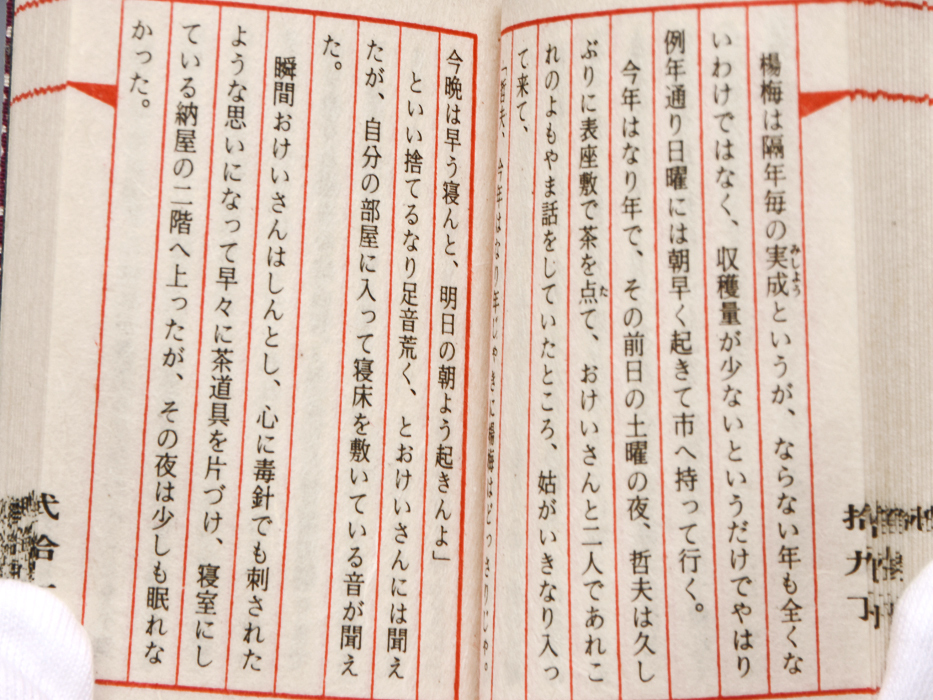 楊梅は隔年毎の実成というが、ならない年も全くな
みしよう
いわけではなく、収穫量が少ないというだけでやはり
例年通り日曜には朝早く起きて市へ持って行く。
今年はなり年で、その前日の土曜の夜、哲夫は久し
ぶりに表座敷で茶を点て、おけいさんと二人であれこ
た
れのよもやま話をしていたところ、姑がいきなり入っ
て来て、
「哲夫、今年はなり年じやきに楊梅はどっさりじゃ。
今晩は早う寝んと、明日の朝よう起きんよ」
といい捨てるなり足音荒く、とおけいさんには聞え
たが、自分の部屋に入って寝床を敷いている音が聞え
た。
瞬間おけいさんはしんとし、心に毒針でも刺された
ような思いになって早々に茶道具を片づけ、寝室にし
ている納屋の二階へ上ったが、その夜は少しも眠れな
かった。
拾九丁
弐拾